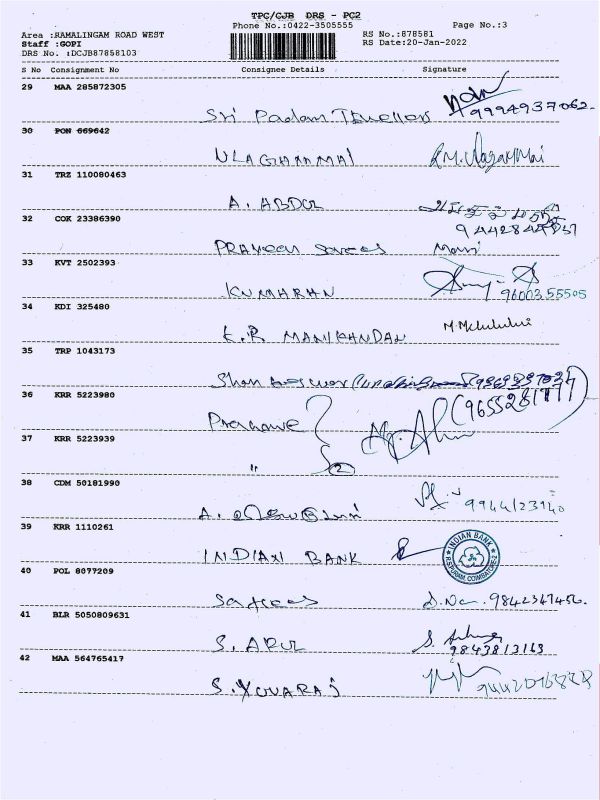 TPC/CJB DRS - PC2
Phone No.:0422-3505555 Page No.:3
Area :RAMALINGAM ROAD WEST RS No.:878581
Staff :GOPI RS Date:20-Jan-2022
DRS No. :DCJB87858103
S No Consignment No Consignee Details Signature
29 MAA 285872305
Sri Padam Jewellers 9994937062
30 PON 669642
ULAGHAMMAl
31 TRZ 110080463
A. ABDUL
32 COK 23386390
PRAVEEN Sarees
33 KVT 2502393
KUMARAN 9600355505
34 KDI 325480
K.R MANIKANDAN
35 TRP 1043173
36 KRR 5223980
37 KRR 5223939
" 2
38 CDM 50181990
A.
39 KRR 1110261
INDIAN BANK INDIAN BANK R.S.PURAM, COIMBATORE-2
40 POL 8077209
Sarees 9842347456.
41 BLR 5050809631
S. ARUL 9843813163
42 MAA 564765417
S. YUVARAJ